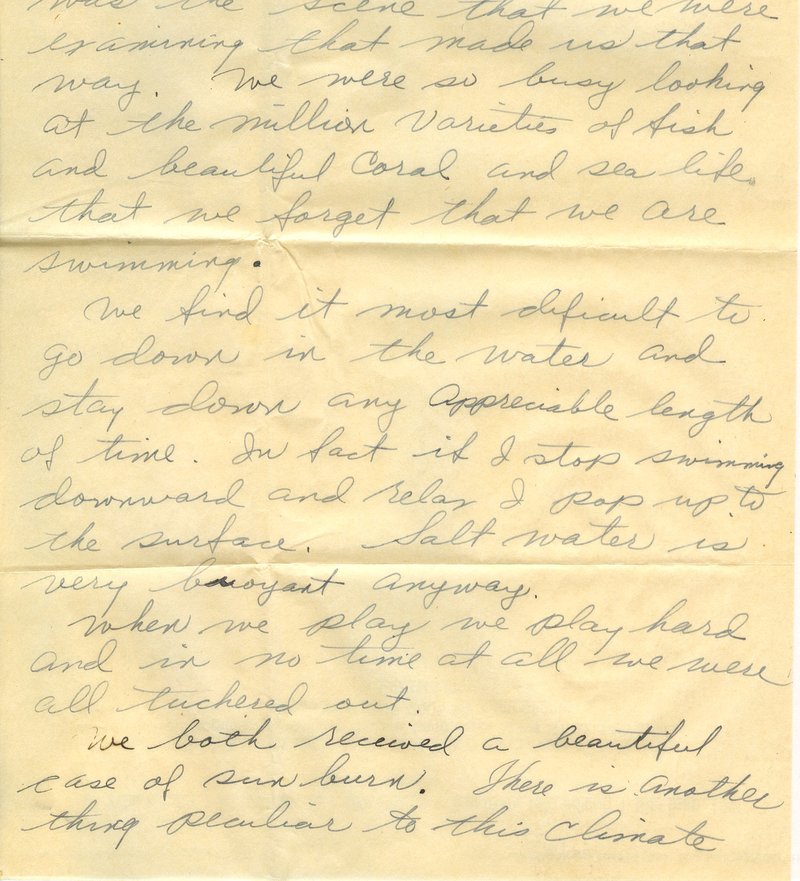 was the scene that we were
examining that made us that
way. We were so busy looking
at the million varieties of fish
and beautiful Coral and sea life.
that we forget that we are
swimming.
We find it most dificult to
go down in the water and
stay down any appreciable length
of time. In fact if I stop swimming
downward and relax I pop up to
the surface. Salt water is
very buoyant anyway.
When we play we play hard
and in no time at all we were
all tuchered out.
We both received a beautiful
case of sun burn. There is another
thing peculiar to this climate